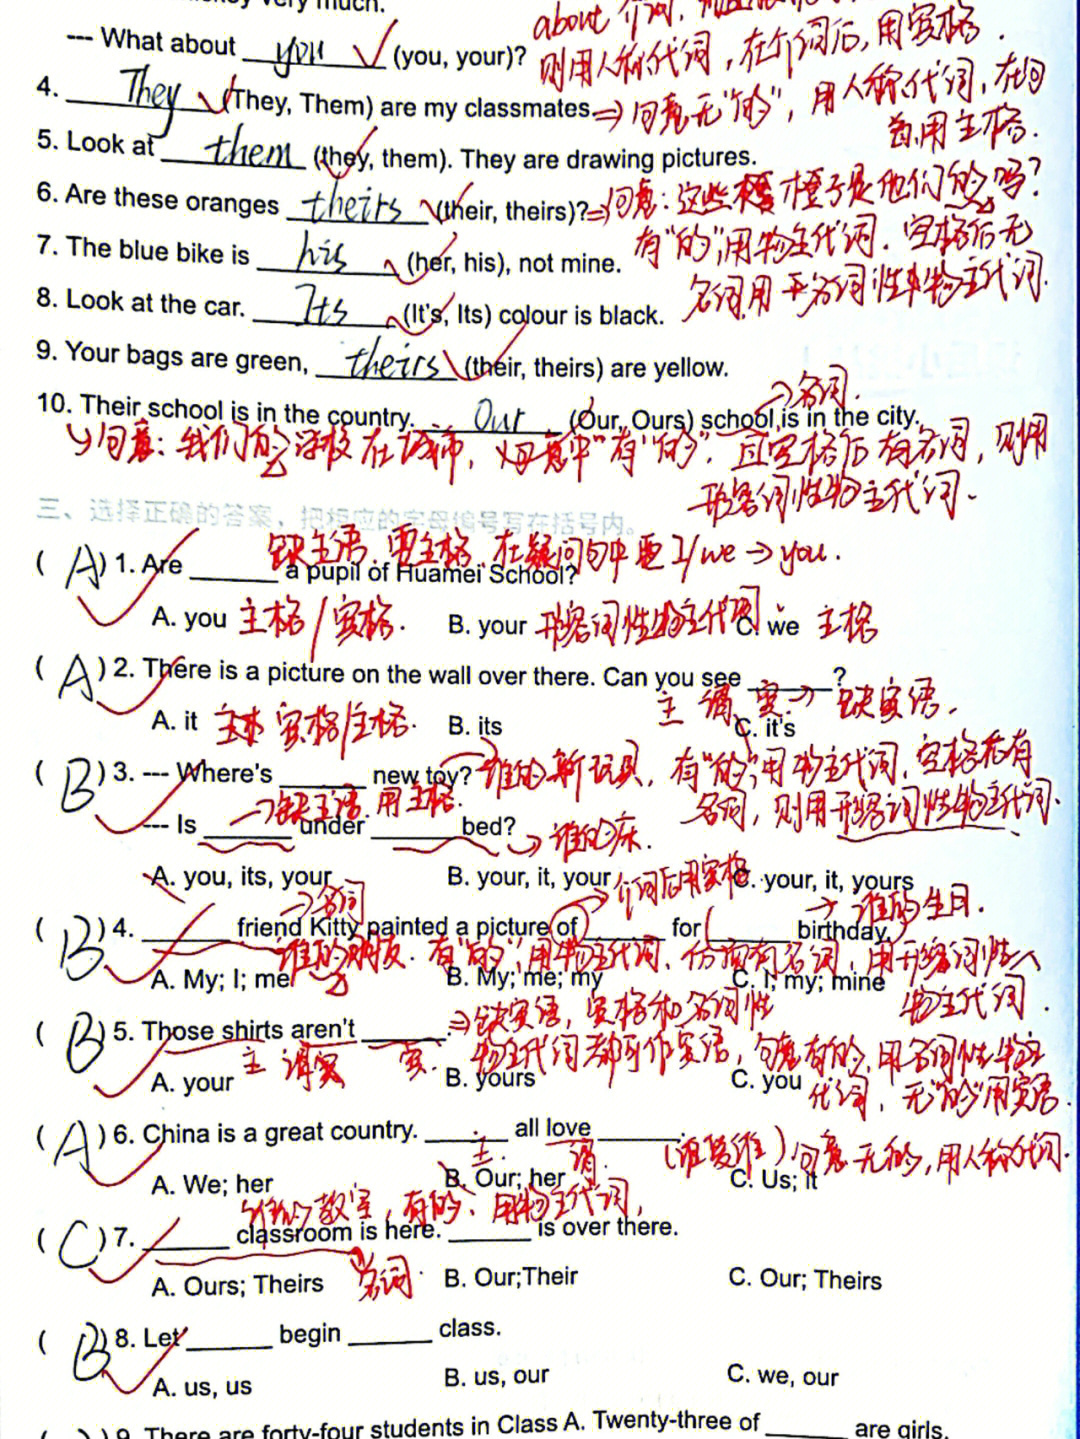 very much.
about 介词,
--- What about you (you, your)?
则用人称代词,在介词后,用宾格.
4. They (They, Them) are my classmates.
⇒句意无"的",用人称代词,在句首用主格.
5. Look at them (they, them). They are drawing pictures.
6. Are these oranges theirs (their, theirs)?
⇒句意:这些橙子是他们的吗?
有"的",用物主代词.空格后无
名词,用名词性物主代词.
7. The blue bike is his (her, his), not mine.
8. Look at the car. Its (It's, Its) colour is black.
9. Your bags are green, theirs (their, theirs) are yellow.
→名词.
10. Their school is in the country. Our (Our, Ours) school is in the city.
句意:我们的学校在城市,句意中"有""的",且空格后有名词,则用
形容词性物主代词.
三、选择正确的答案,把相应的字母编号写在括号内。
缺主语,要主格,在疑问句中要I/we→you.
( A ) 1. Are ______ a pupil of Huamei School?
A. you 主格/宾格. B. your 形容词性物主代词 C. we 主格
( A ) 2. There is a picture on the wall over there. Can you see ______?
主 谓 宾→缺宾语.
A. it 宾格/主格. B. its C. it's
( B ) 3. --- Where's ______ new toy?
谁的新玩具,有"的",用物主代词,空格后有
名词,则用形容词性物主代词.
→缺主语,用主格.
--- Is ______ under ______ bed?
→谁的床.
A. you, its, your B. your, it, your C. your, it, yours
→名词 →介词后用宾格 →谁的生日.
( B ) 4. ______ friend Kitty painted a picture of ______ for ______ birthday.
谁的朋友.有"的",用物主代词,后有名词,用形容词性
物主代词.
A. My; I; me B. My; me; my C. I; my; mine
( B ) 5. Those shirts aren't ______.
⇒缺宾语,宾格和名词性
物主代词都可作宾语,句意有的,用名词性物主
代词,无"的"用宾语.
主 谓 宾.
A. your B. yours C. you
( A ) 6. China is a great country. ______ all love ______.
主. 谓. (谁爱谁)句意无的,用人称代词.
A. We; her B. Our; her C. Us; it
谁的教室,有的,用物主代词,
( C ) 7. ______ classroom is here. ______ is over there.
名词
A. Ours; Theirs B. Our;Their C. Our; Theirs
( B ) 8. Let ______ begin ______ class.
A. us, us B. us, our C. we, our
( ) 9. There are forty-four students in Class A. Twenty-three of ______ are girls.